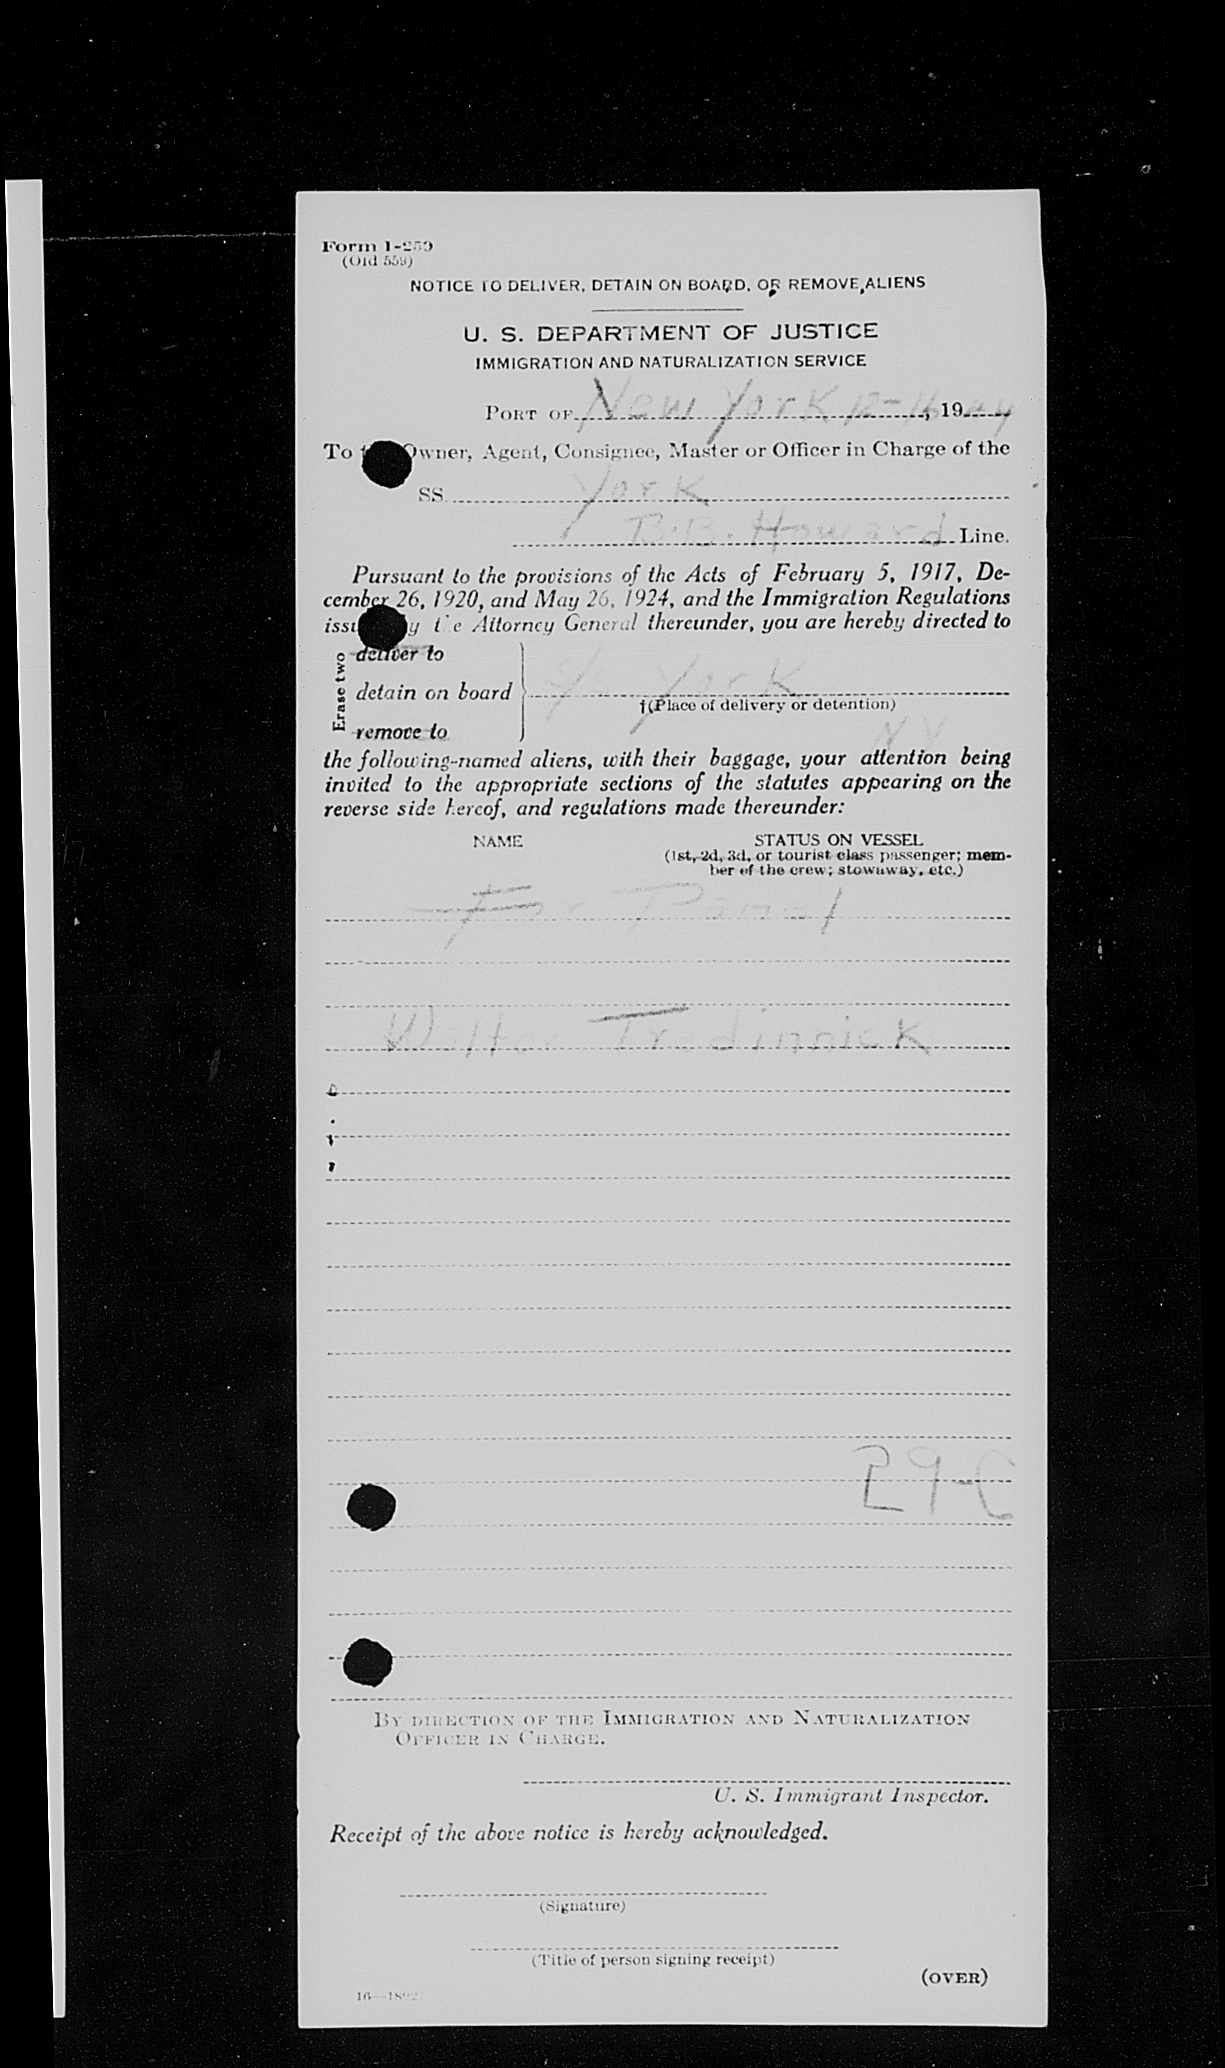 Form I-259
(Old 559)
NOTICE TO DELIVER, DETAIN ON BOARD, OR REMOVE ALIENS
U. S. DEPARTMENT OF JUSTICE
IMMIGRATION AND NATURALIZATION SERVICE
PORT OF New York 12-16, 19
To Owner, Agent, Consignee, Master or Officer in Charge of the
SS York
B.B. Howard Line.
Pursuant to the provisions of the Acts of February 5, 1917, De-
cember 26, 1920, and May 26, 1924, and the Immigration Regulations
issued by the Attorney General thereunder, you are hereby directed to
Erase two
deliver to
detain on board S/S York
†(Place of delivery or detention)
remove to N Y
the following-named aliens, with their baggage, your attention being
invited to the appropriate sections of the statutes appearing on the
reverse side hereof, and regulations made thereunder:
NAME STATUS ON VESSEL
(1st, 2d, 3d, or tourist class passenger; mem-
ber of the crew; stowaway, etc.)
Walter Tredinnick
29-C
BY DIRECTION OF THE IMMIGRATION AND NATURALIZATION
OFFICER IN CHARGE.
U. S. Immigrant Inspector.
Receipt of the above notice is hereby acknowledged.
(Signature)
(Title of person signing receipt)
(OVER)